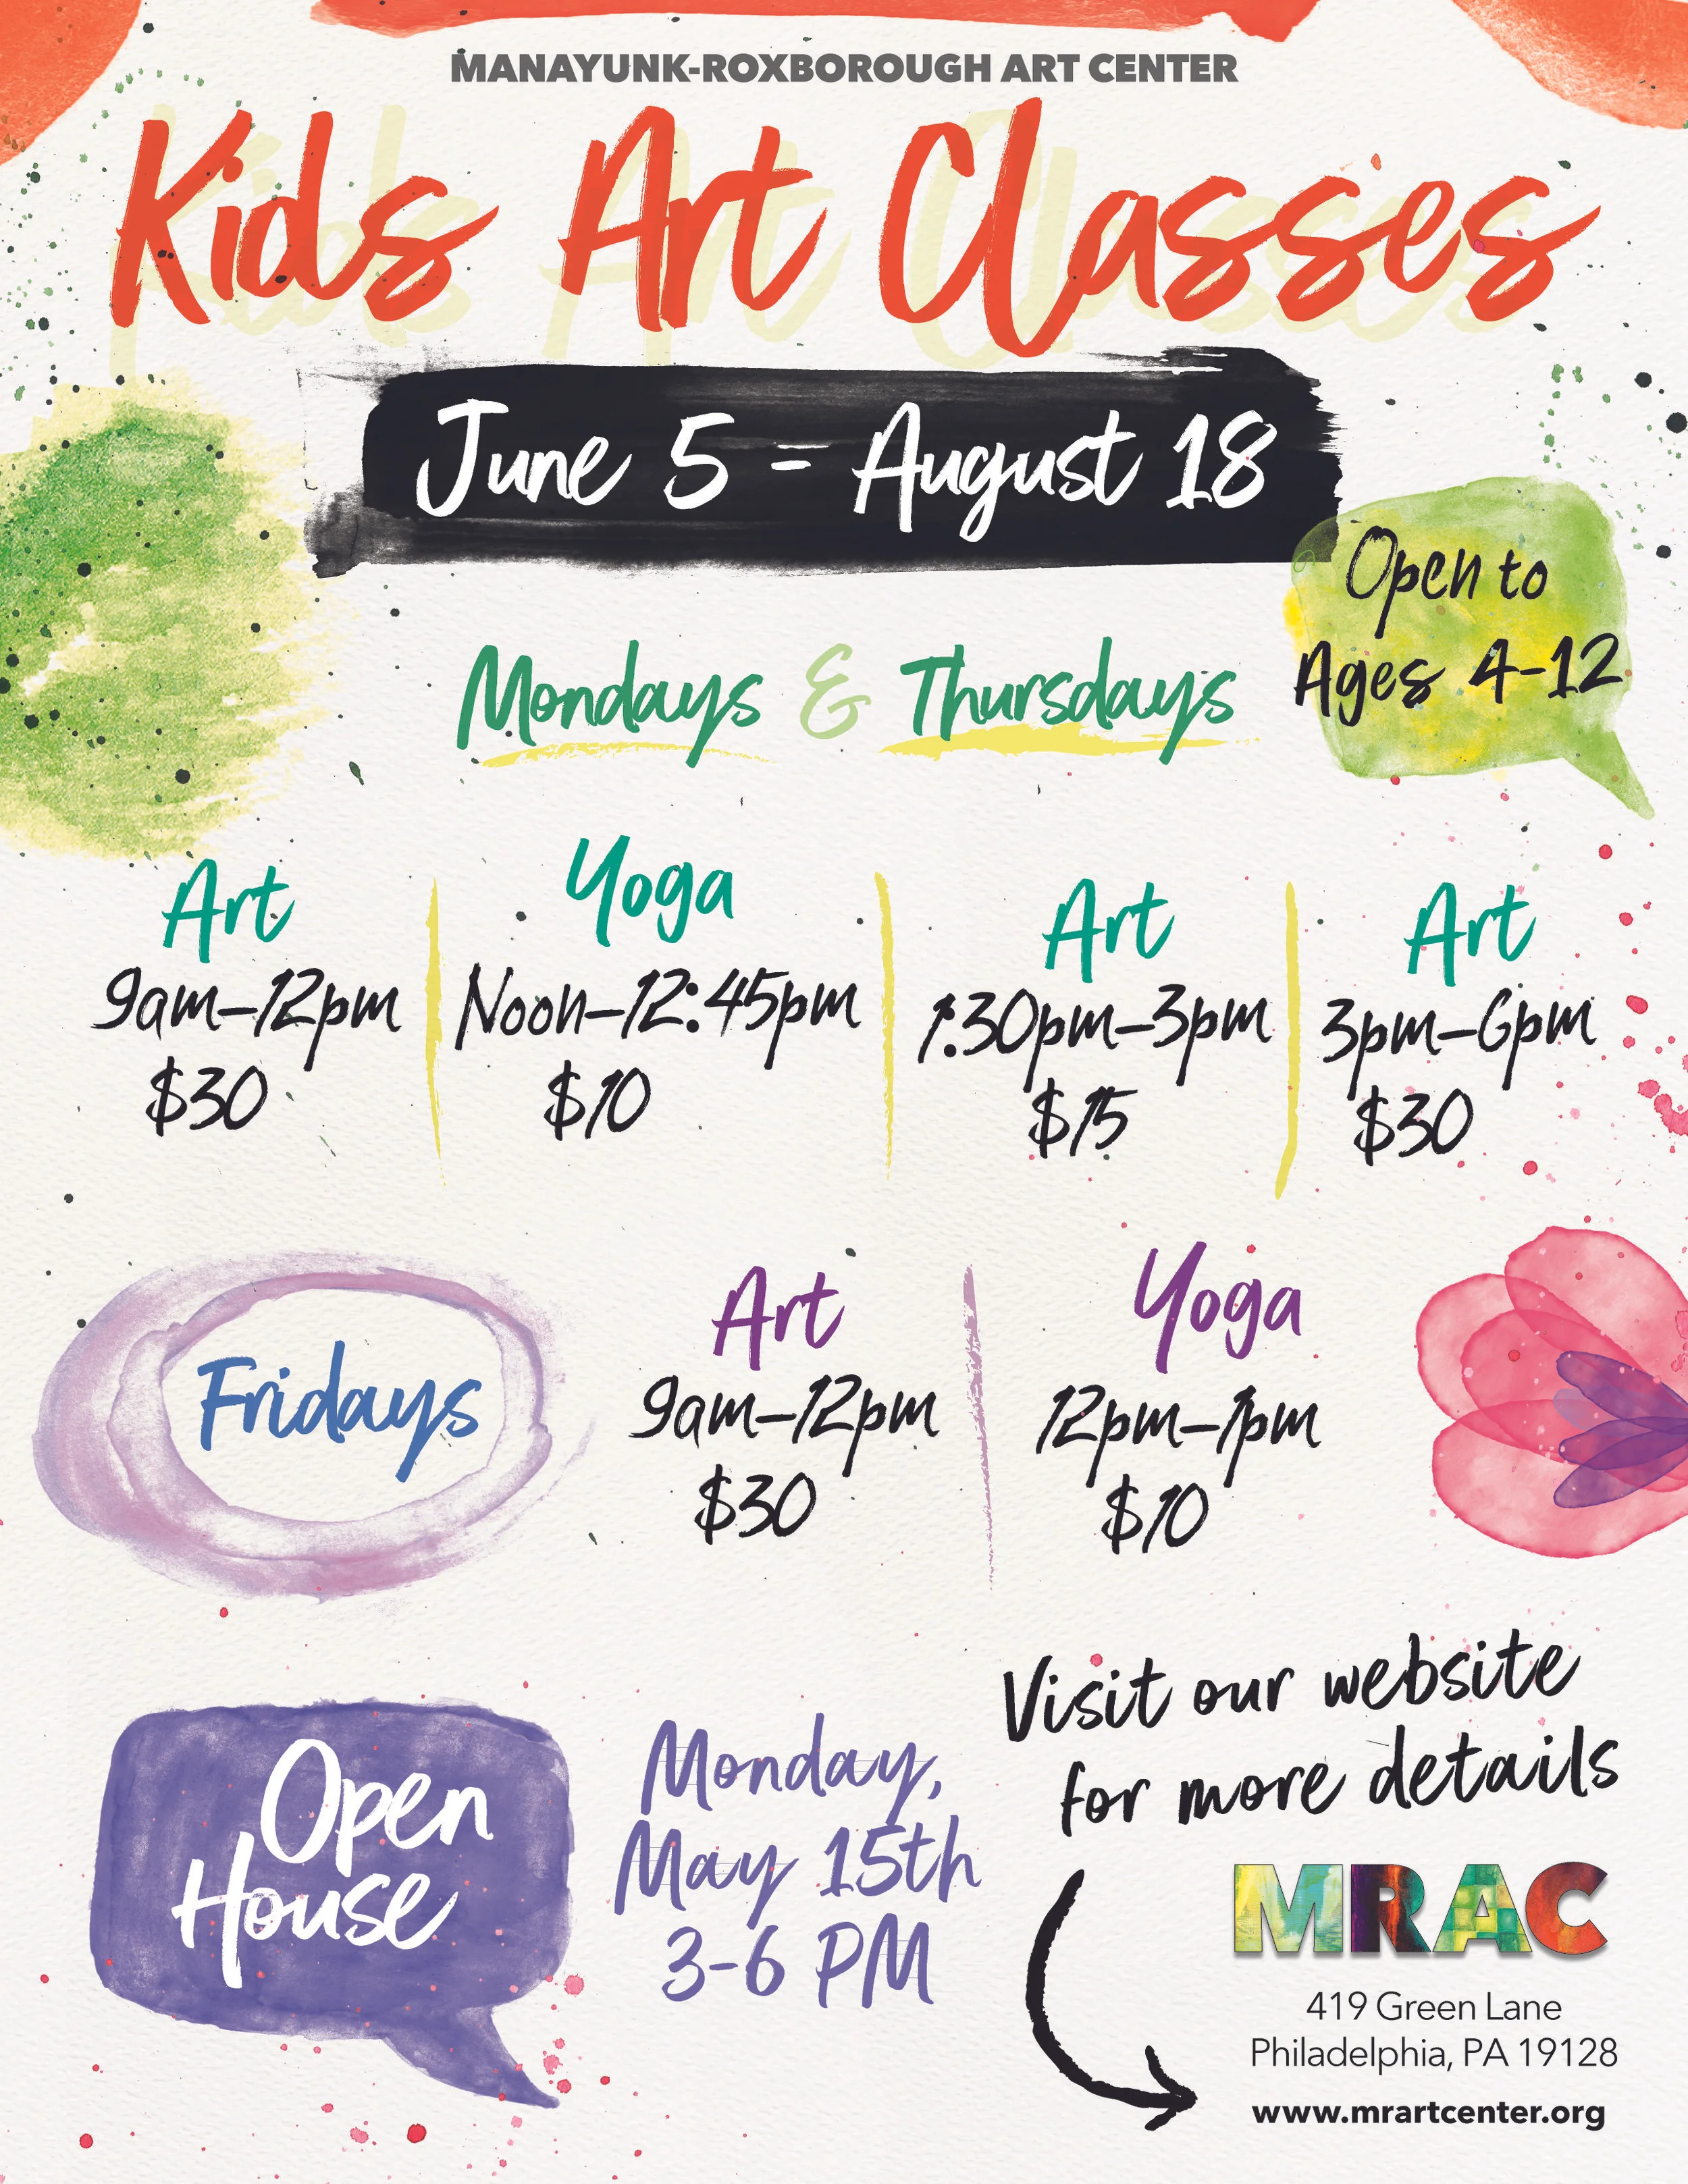 MANAYUNK-ROXBOROUGH ART CENTER
Kids Art Classes
June 5 - August 18
Open to
Ages 4-12
Mondays & Thursdays
Art
9am-12pm
$30
Yoga
Noon-12:45pm
$10
Art
1:30pm-3pm
$15
Art
3pm-6pm
$30
Fridays
Art
9am-12pm
$30
Yoga
12pm-1pm
$10
Open
House
Monday,
May 15th
3-6 PM
Visit our website
for more details
MRAC
419 Green Lane
Philadelphia, PA 19128
www.mrartcenter.org